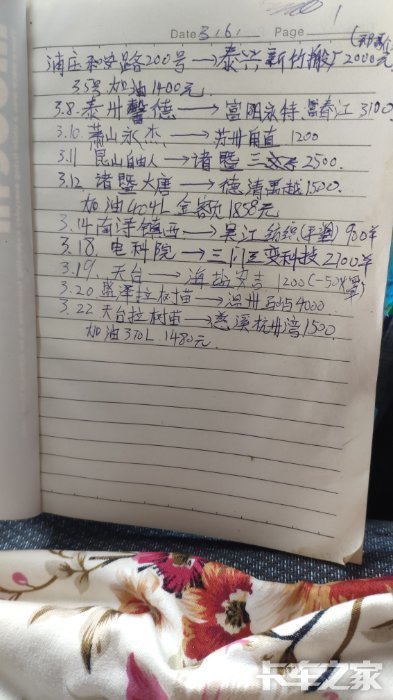 Date 3.6. Page 1
浦庄和安路200号→泰兴新竹搬厂2000元
35号加油1400元.
3.8.泰州馨德→富阳永特.富春江3100
3.10.萧山永杰→苏州甪直1200
3.11昆山自由人→诸暨三2500.
3.12诸暨大唐→德清禹越1500.
加油404L金额1858元
3.14南浔镇西→吴江纺织900
3.18.电科院→三门三变科技2100
3.19.天台→海盐安吉1200(-50
3.20盛泽拉树苗→温州4000.
3.22.天台拉树苗→慈溪杭州湾1500
加油370L 1480元.
卡车之家